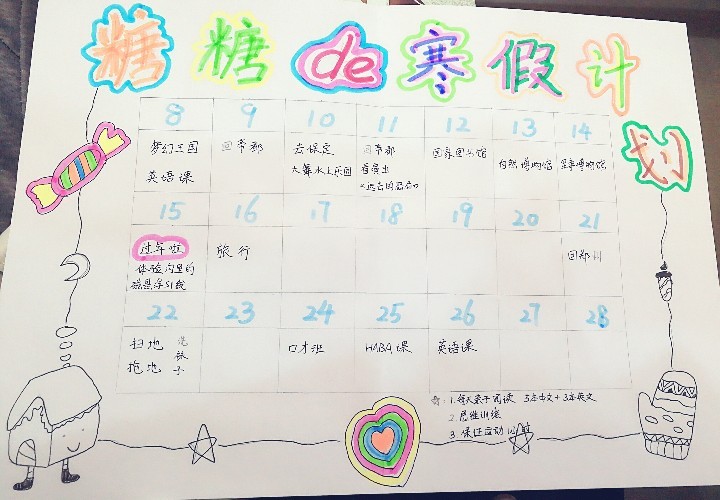 糖糖de寒假计划
8 9 10 11 12 13 14
梦幻王国 回帝都 去保定 回帝都 国家图书馆 自然博物馆 军事博物馆
英语课 水上乐园 看演出
15 16 17 18 19 20 21
过年啦 旅行 回郑州
体验沟里的
磁悬浮
22 23 24 25 26 27 28
扫地 洗袜子 口才班 HABA课 英语课
拖地
1.每天亲子阅读 5本中文+3本英文
2.思维训练
3.保证运动